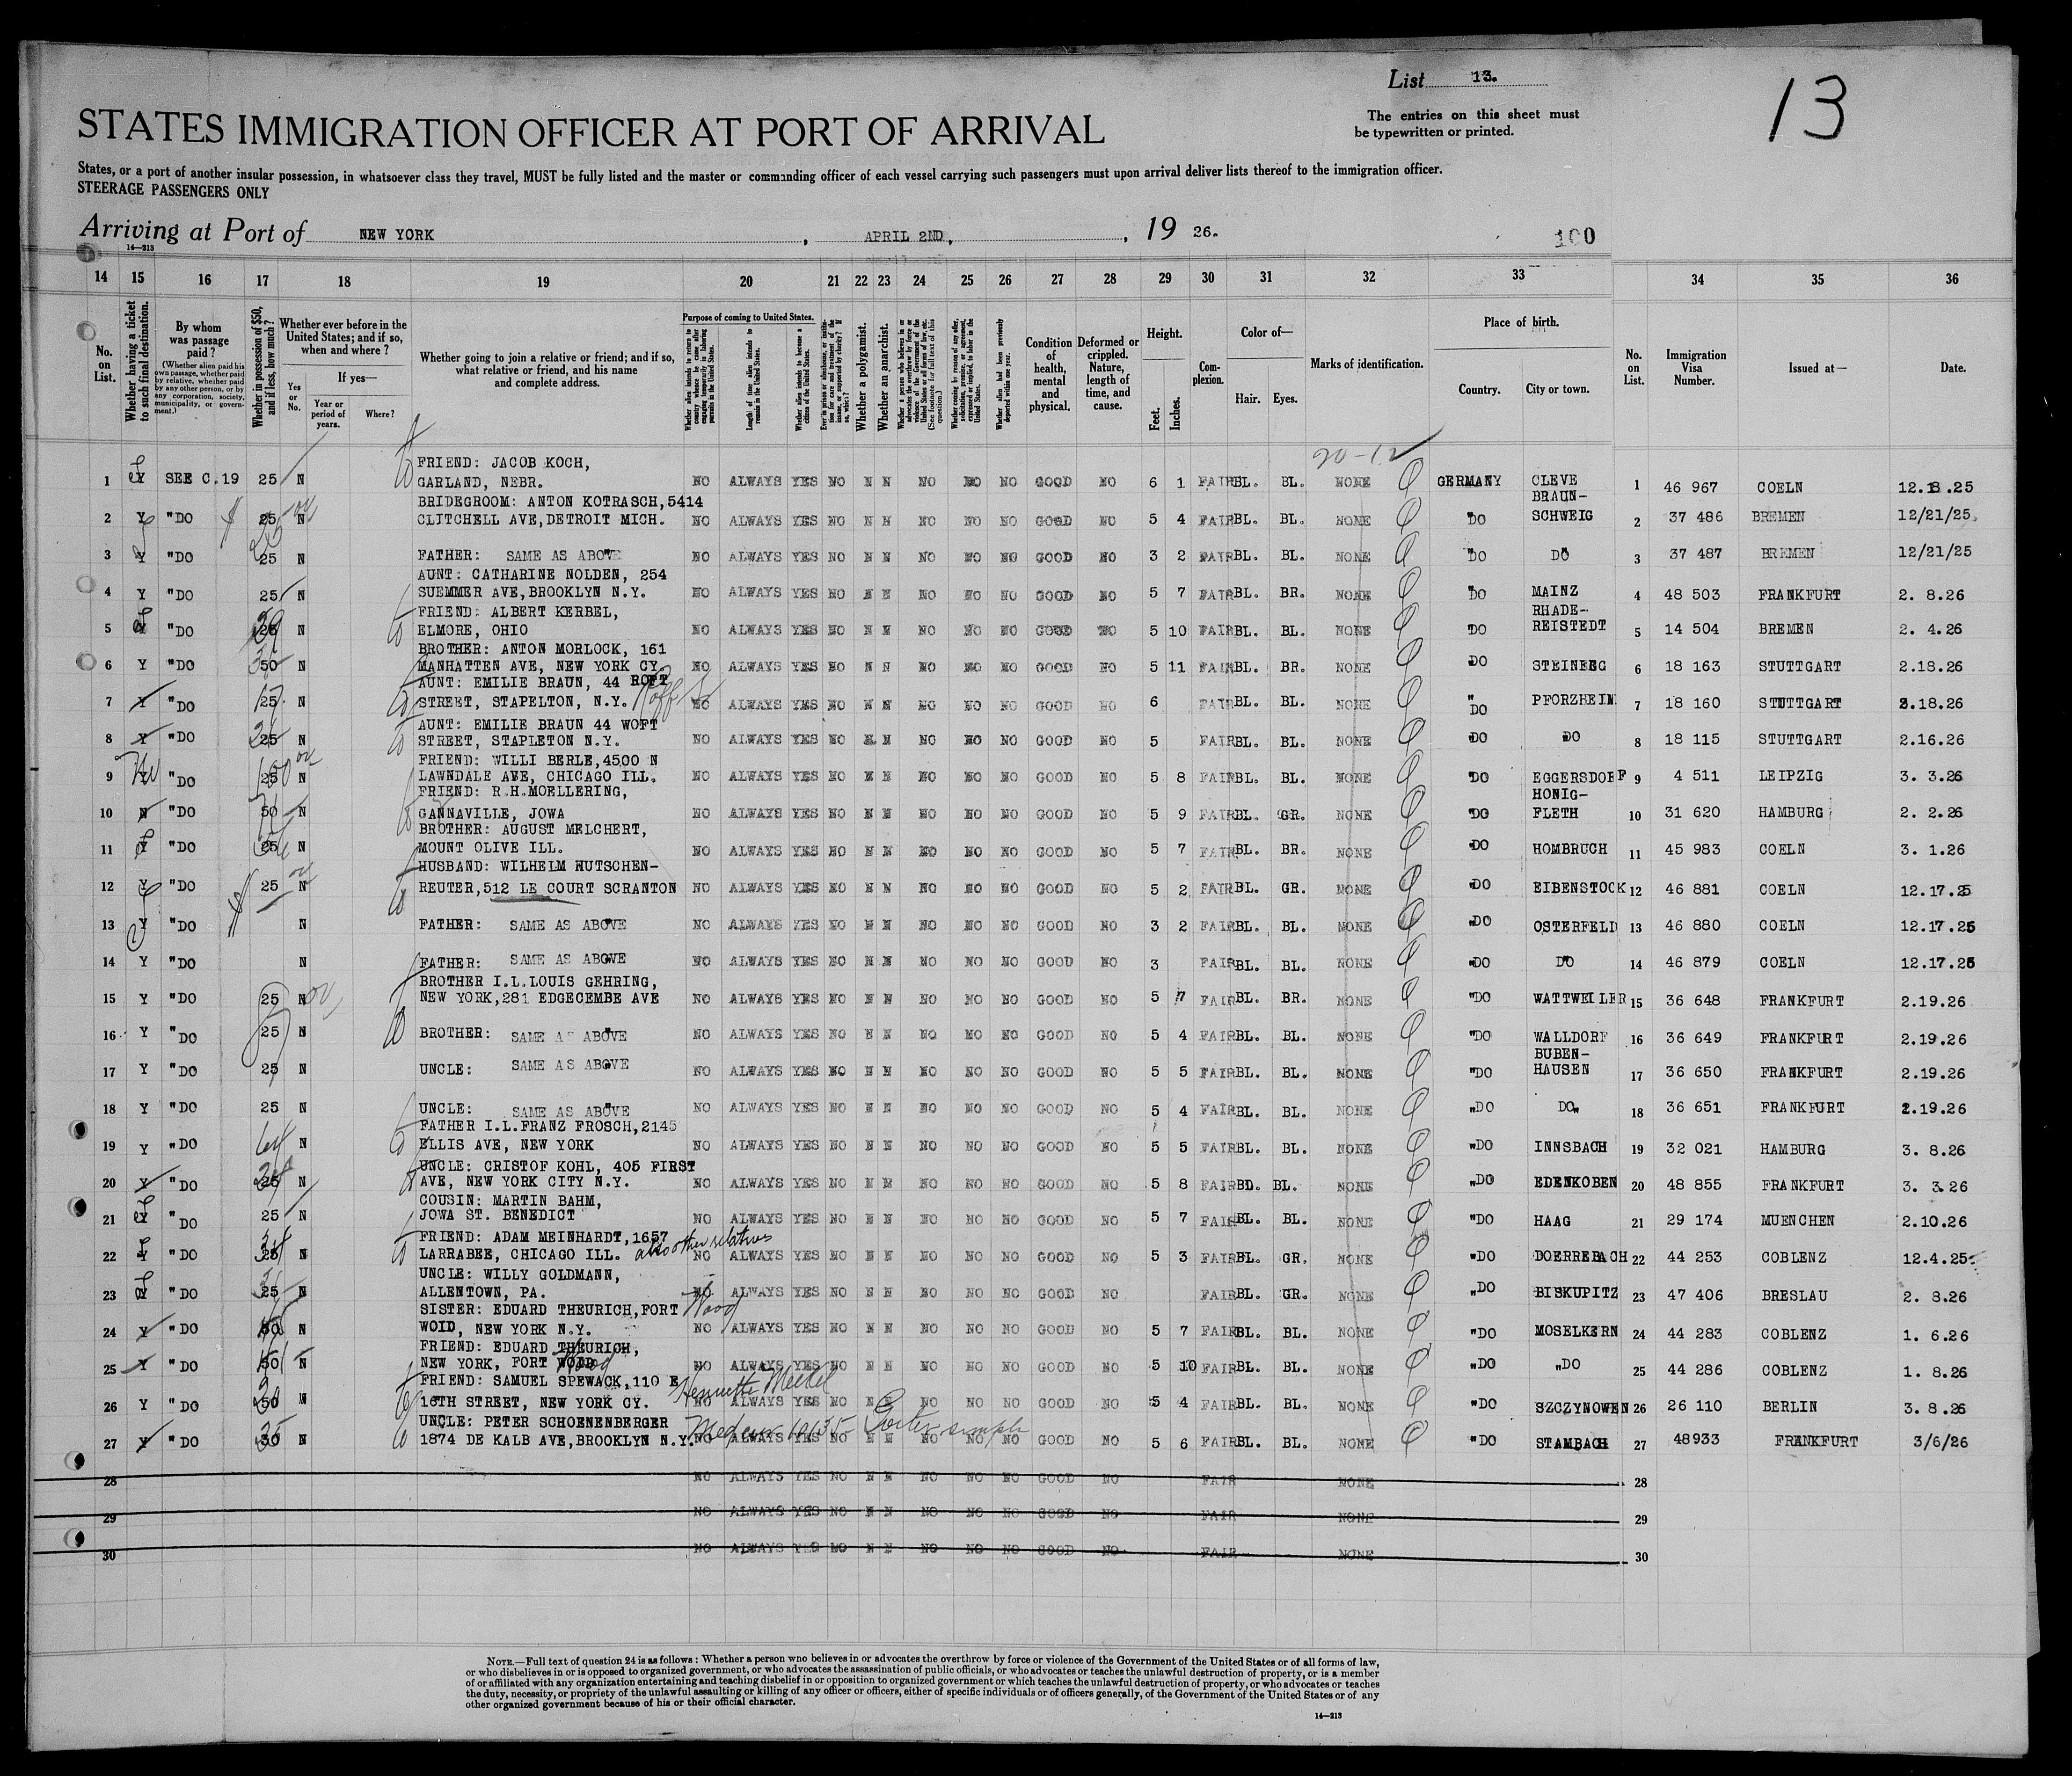 List 13.
13
The entries on this sheet must
be typewritten or printed.
STATES IMMIGRATION OFFICER AT PORT OF ARRIVAL
States, or a port of another insular possession, in whatsoever class they travel, MUST be fully listed and the master or commanding officer of each vessel carrying such passengers must upon arrival deliver lists thereof to the immigration officer.
STEERAGE PASSENGERS ONLY
Arriving at Port of NEW YORK , APRIL 2ND, , 19 26.
14—213
100
14 15 16 17 18 19 20 21 22 23 24 25 26 27 28 29 30 31 32 33 34 35 36
No. on List.
Whether having a ticket to such final destination.
By whom was passage paid?
(Whether alien paid his own passage, whether paid by relative, whether paid by any other person, or by any corporation, society, municipality, or government.)
Whether in possession of $50, and if less, how much?
Whether ever before in the United States; and if so, when and where?
If yes—
Yes or No.
Year or period of years.
Where?
Whether going to join a relative or friend; and if so, what relative or friend, and his name and complete address.
Purpose of coming to United States.
Length of time alien intends to remain in the United States.
Whether alien intends to become a citizen of the United States.
Whether a polygamist.
Whether an anarchist.
Condition of health, mental and physical.
Deformed or crippled. Nature, length of time, and cause.
Height.
Feet.
Inches.
Complexion.
Color of—
Hair.
Eyes.
Marks of identification.
Place of birth.
Country.
City or town.
No. on List.
Immigration Visa Number.
Issued at—
Date.
FRIEND: JACOB KOCH,
1 Y SEE C.19 25 N GARLAND, NEBR. NO ALWAYS YES NO N N NO NO NO GOOD NO 6 1 FAIR BL. BL. NONE GERMANY CLEVE 1 46 967 COELN 12.8.25
BRIDEGROOM: ANTON KOTRASCH,5414 BRAUN-
2 Y "DO 25 N CLITCHELL AVE,DETROIT MICH. NO ALWAYS YES NO N N NO NO NO GOOD NO 5 4 FAIR BL. BL. NONE "DO SCHWEIG 2 37 486 BREMEN 12/21/25.
3 Y "DO 25 N FATHER: SAME AS ABOVE NO ALWAYS YES NO N N NO NO NO GOOD NO 3 2 FAIR BL. BL. NONE "DO DO 3 37 487 BREMEN 12/21/25
AUNT: CATHARINE NOLDEN, 254
4 Y "DO 25 N SUEMMER AVE,BROOKLYN N.Y. NO ALWAYS YES NO N N NO NO NO GOOD NO 5 7 FAIR BL. BR. NONE "DO MAINZ 4 48 503 FRANKFURT 2. 8.26
FRIEND: ALBERT KERBEL, RHADE-
5 Y "DO N ELMORE, OHIO NO ALWAYS YES NO N N NO NO NO GOOD NO 5 10 FAIR BL. BL. NONE "DO REISTEDT 5 14 504 BREMEN 2. 4.26
BROTHER: ANTON MORLOCK, 161
6 Y "DO 50 N MANHATTEN AVE, NEW YORK CY. NO ALWAYS YES NO N N NO NO NO GOOD NO 5 11 FAIR BL. BR. NONE "DO STEINEGG 6 18 163 STUTTGART 2.18.26
AUNT: EMILIE BRAUN, 44 ROFT
7 Y "DO 25 N STREET, STAPELTON, N.Y. Roff St NO ALWAYS YES NO N N NO NO NO GOOD NO 6 FAIR BL. BL. NONE "DO PFORZHEIM 7 18 160 STUTTGART 2.18.26
AUNT: EMILIE BRAUN 44 WOFT
8 Y "DO 25 N STREET, STAPLETON N.Y. NO ALWAYS YES NO N N NO NO NO GOOD NO 5 FAIR BL. BL. NONE "DO DO 8 18 115 STUTTGART 2.16.26
FRIEND: WILLI BERLE,4500 N
9 Y "DO 25 N LAWNDALE AVE, CHICAGO ILL. NO ALWAYS YES NO N N NO NO NO GOOD NO 5 8 FAIR BL. BL. NONE "DO EGGERSDORF 9 4 511 LEIPZIG 3. 3.26
FRIEND: R.H.MOELLERING, HONIG-
10 N "DO 50 N GANNAVILLE, JOWA NO ALWAYS YES NO N N NO NO NO GOOD NO 5 9 FAIR BL. GR. NONE "DO FLETH 10 31 620 HAMBURG 2. 2.26
BROTHER: AUGUST MELCHERT,
11 Y "DO 25 N MOUNT OLIVE ILL. NO ALWAYS YES NO N N NO NO NO GOOD NO 5 7 FAIR BL. BR. NONE "DO HOMBRUCH 11 45 983 COELN 3. 1.26
HUSBAND: WILHELM HUTSCHEN-
12 Y "DO 25 N REUTER,512 LE COURT SCRANTON NO ALWAYS YES NO N N NO NO NO GOOD NO 5 2 FAIR BL. GR. NONE "DO EIBENSTOCK 12 46 881 COELN 12.17.25
13 Y "DO N FATHER: SAME AS ABOVE NO ALWAYS YES NO N N NO NO NO GOOD NO 3 2 FAIR BL. BL. NONE "DO OSTERFELD 13 46 880 COELN 12.17.25
14 Y "DO N FATHER: SAME AS ABOVE NO ALWAYS YES NO N N NO NO NO GOOD NO 3 FAIR BL. BL. NONE "DO DO 14 46 879 COELN 12.17.25
BROTHER I.L.LOUIS GEHRING,
15 Y "DO 25 N NEW YORK,281 EDGECEMBE AVE NO ALWAYS YES NO N N NO NO NO GOOD NO 5 7 FAIR BL. BR. NONE "DO WATTWEILER 15 36 648 FRANKFURT 2.19.26
16 Y "DO 25 N BROTHER: SAME AS ABOVE NO ALWAYS YES NO N N NO NO NO GOOD NO 5 4 FAIR BL. BL. NONE "DO WALLDORF 16 36 649 FRANKFURT 2.19.26
BUBEN-
17 Y "DO 25 N UNCLE: SAME AS ABOVE NO ALWAYS YES NO N N NO NO NO GOOD NO 5 5 FAIR BL. BL. NONE "DO HAUSEN 17 36 650 FRANKFURT 2.19.26
18 Y "DO 25 N UNCLE: SAME AS ABOVE NO ALWAYS YES NO N N NO NO NO GOOD NO 5 4 FAIR BL. BL. NONE "DO DO" 18 36 651 FRANKFURT 2.19.26
FATHER I.L.FRANZ FROSCH,2145
19 Y "DO 64 N ELLIS AVE, NEW YORK NO ALWAYS YES NO N N NO NO NO GOOD NO 5 5 FAIR BL. BL. NONE "DO INNSBACH 19 32 021 HAMBURG 3. 8.26
UNCLE: CRISTOF KOHL, 405 FIRST
20 Y "DO 25 N AVE, NEW YORK CITY N.Y. NO ALWAYS YES NO N N NO NO NO GOOD NO 5 8 FAIR BD. BL. NONE "DO EDENKOBEN 20 48 855 FRANKFURT 3. 3.26
COUSIN: MARTIN BAHM,
21 Y "DO 25 N JOWA ST. BENEDICT NO ALWAYS YES NO N N NO NO NO GOOD NO 5 7 FAIR BL. BL. NONE "DO HAAG 21 29 174 MUENCHEN 2.10.26
FRIEND: ADAM MEINHARDT,1657
22 Y "DO 25 N LARRABEE, CHICAGO ILL. also other relatives NO ALWAYS YES NO N N NO NO NO GOOD NO 5 3 FAIR BL. GR. NONE "DO DOERREBACH 22 44 253 COBLENZ 12.4.25
UNCLE: WILLY GOLDMANN,
23 Y "DO 25 N ALLENTOWN, PA. NO ALWAYS YES NO N N NO NO NO GOOD NO FAIR BL. GR. NONE "DO BISKUPITZ 23 47 406 BRESLAU 2. 8.26
SISTER: EDUARD THEURICH,FORT Wood
24 Y "DO 50 N WOID, NEW YORK N.Y. NO ALWAYS YES NO N N NO NO NO GOOD NO 5 7 FAIR BL. BL. NONE "DO MOSELKERN 24 44 283 COBLENZ 1. 6.26
FRIEND: EDUARD THEURICH,
25 Y "DO 50 N NEW YORK, FORT WOID Wood NO ALWAYS YES NO N N NO NO NO GOOD NO 5 10 FAIR BL. BL. NONE "DO "DO 25 44 286 COBLENZ 1. 8.26
FRIEND: SAMUEL SPEWACK,110 E Henriette Meikel
26 Y "DO 50 N 16TH STREET, NEW YORK CY. NO ALWAYS YES NO N N NO NO NO GOOD NO 5 4 FAIR BL. BL. NONE "DO SZCZYNOWEN 26 26 110 BERLIN 3. 8.26
UNCLE: PETER SCHOENENBERGER Med cer Goiter simple
27 Y "DO 30 N 1874 DE KALB AVE,BROOKLYN N.Y. NO ALWAYS YES NO N N NO NO NO GOOD NO 5 6 FAIR BL. BL. NONE "DO STAMBACH 27 48933 FRANKFURT 3/6/26
28 NO ALWAYS YES NO N N NO NO NO GOOD NO FAIR NONE 28
29 NO ALWAYS YES NO N N NO NO NO GOOD NO FAIR NONE 29
30 NO ALWAYS YES NO N N NO NO NO GOOD NO FAIR NONE 30
NOTE.—Full text of question 24 is as follows: Whether a person who believes in or advocates the overthrow by force or violence of the Government of the United States or of all forms of law,
or who disbelieves in or is opposed to organized government, or who advocates the assassination of public officials, or who advocates or teaches the unlawful destruction of property, or is a member
of or affiliated with any organization entertaining and teaching disbelief in or opposition to organized government or which teaches the unlawful destruction of property, or who advocates or teaches
the duty, necessity, or propriety of the unlawful assaulting or killing of any officer or officers, either of specific individuals or of officers generally, of the Government of the United States or of any
other organized government because of his or their official character.
14—213